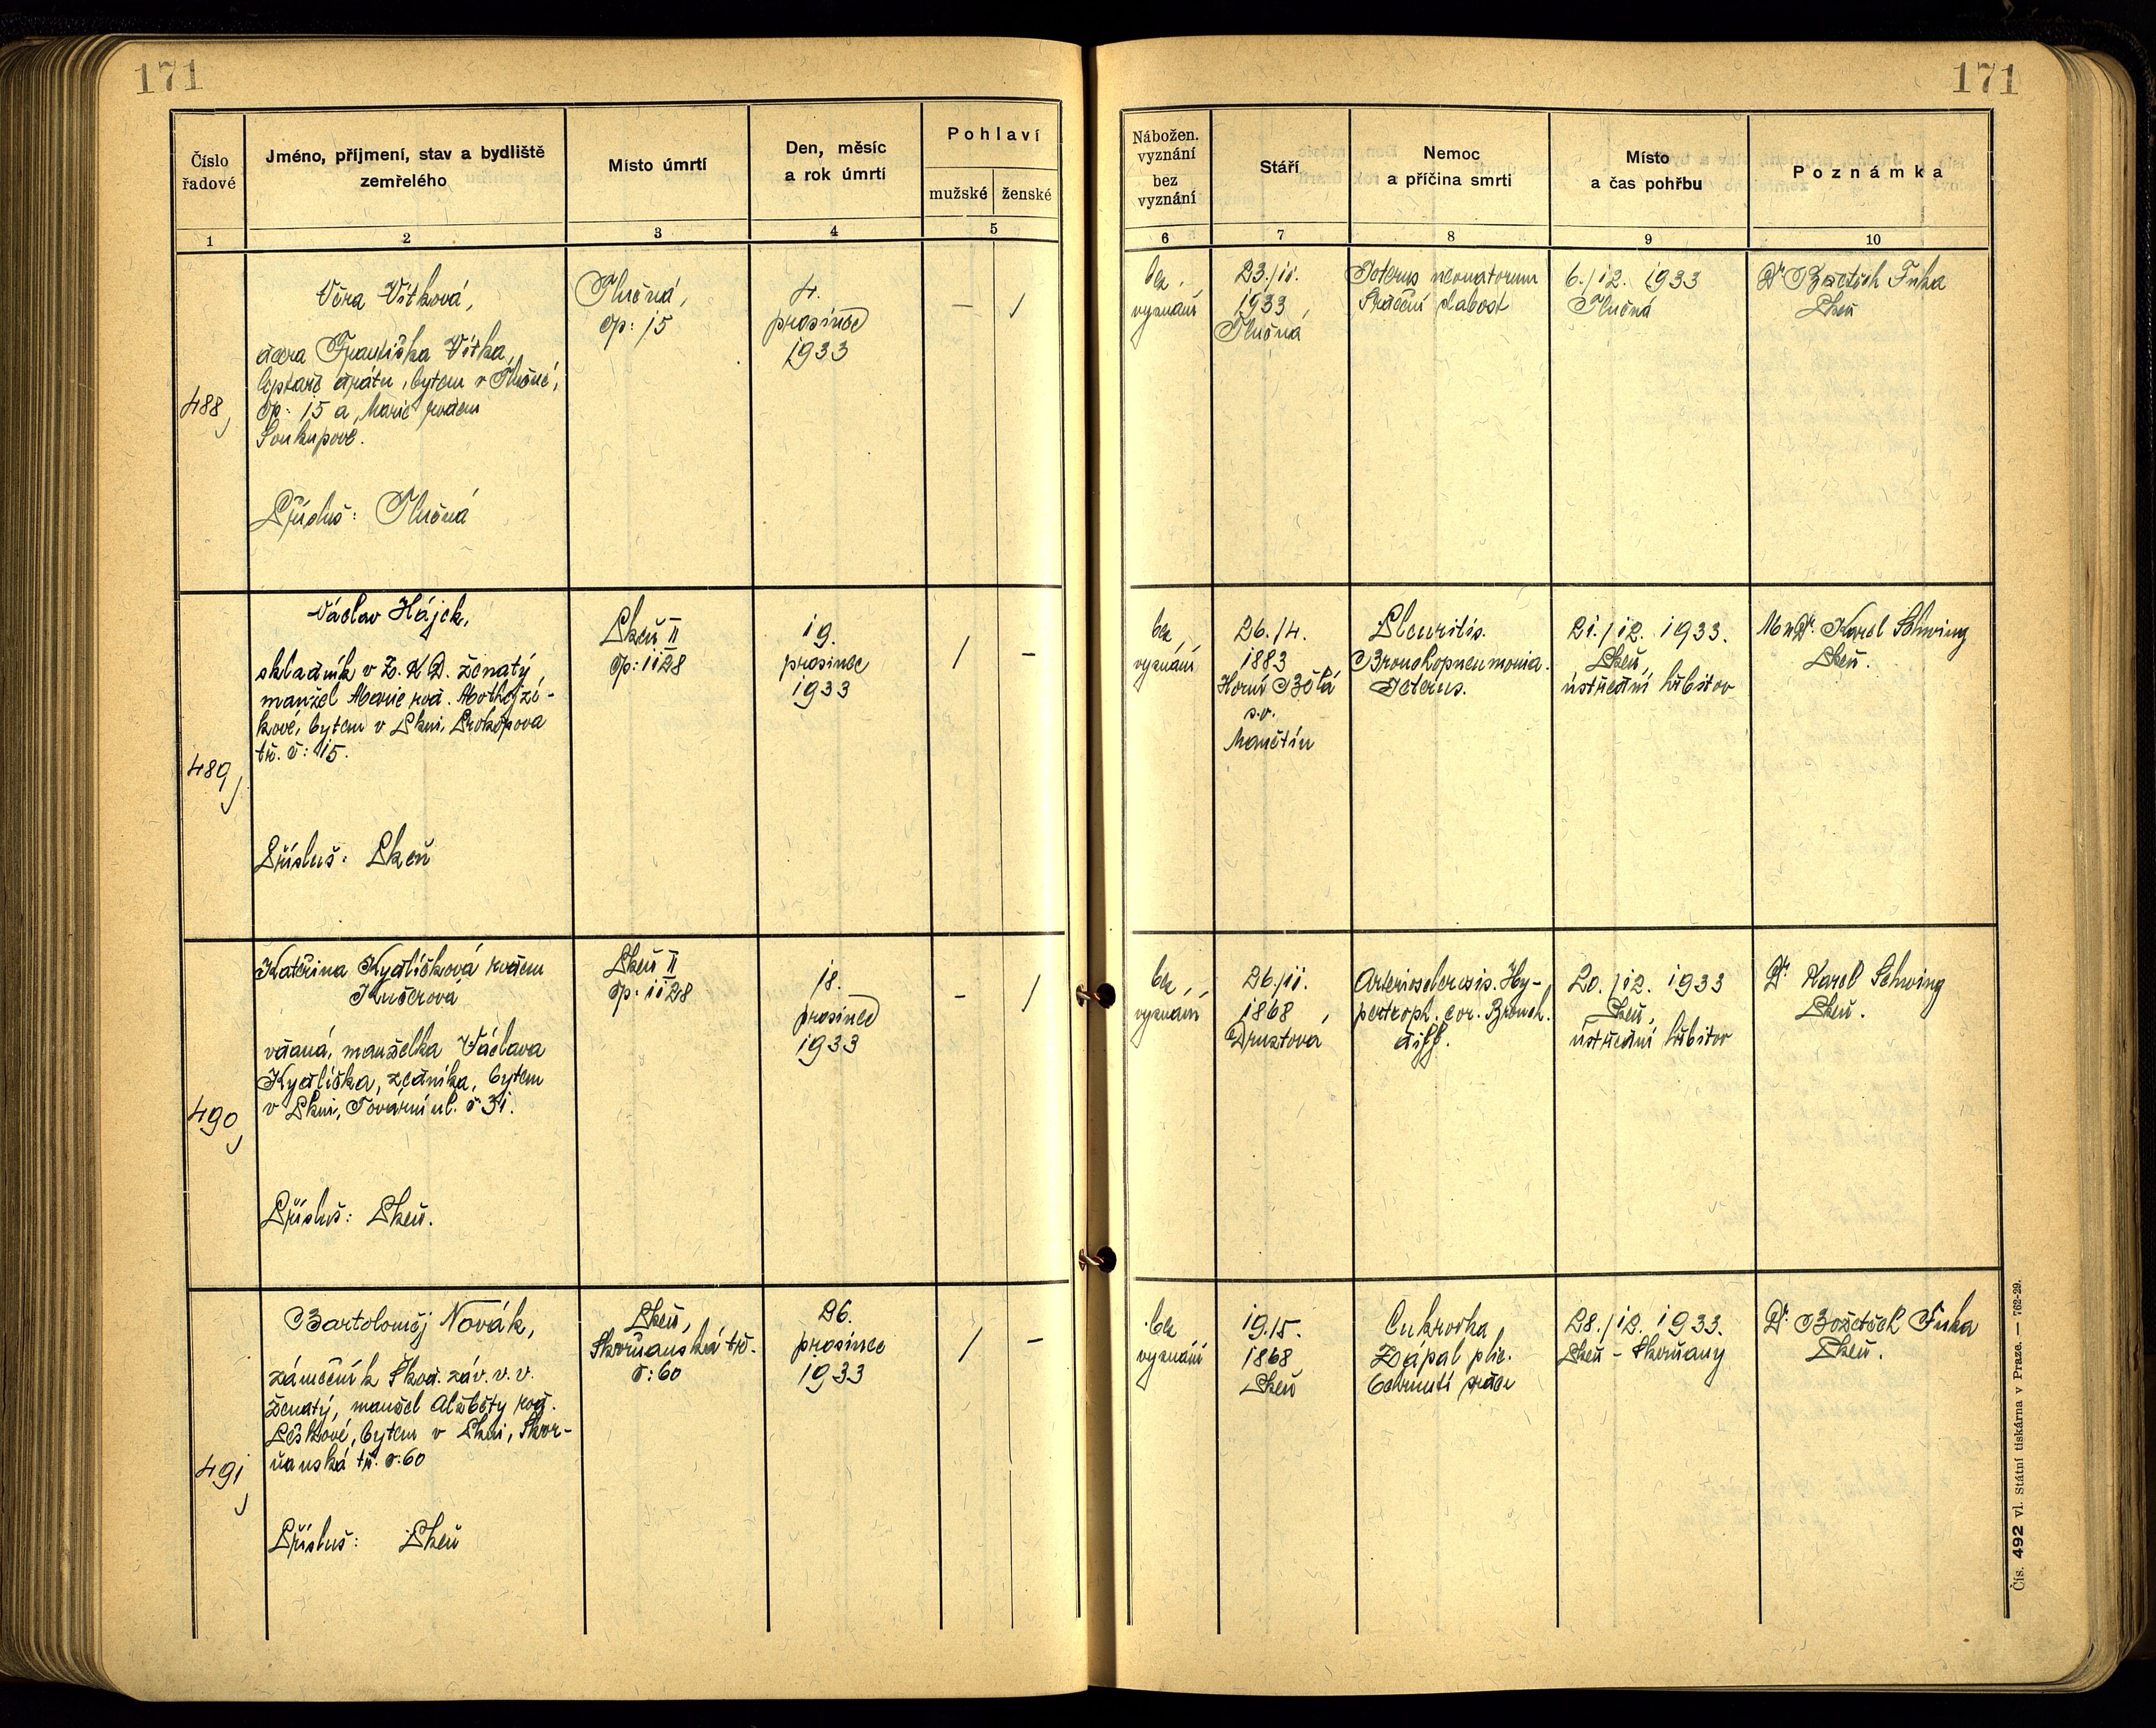 171
171
Číslo
řadové
Jméno, příjmení, stav a bydliště
zemřelého
Místo úmrtí
Den, měsíc
a rok úmrtí
Pohlaví
mužské
ženské
Nábožen.
vyznání
bez
vyznání
Stáří
Nemoc
a příčina smrti
Místo
a čas pohřbu
Poznámka
1
2
3
4
5
6
7
8
9
10
488
Věra Vítková,
dcera Františka Vítka,
drátu, bytem v Tlučné,
čp: 15 a Marie rozen
Soukupové.
Přísluš: Tlučná
Tlučná,
čp: 15
4.
prosince
1933
–
/
bez
vyznání
23./11.
1933
Tlučná
Icterus neonatorum
slabost
6./12. 1933
Tlučná
Dr Fuka
Plzeň
489
Václav Hájek,
skladník v Z.K.D. ženatý,
manžel Marie roz.
kové, bytem v Plzni, Prokopova
tř. č: 15.
Přísluš: Plzeň
Plzeň II
čp: 1128
19.
prosince
1933
/
–
bez
vyznání
26./4.
1883
Horní Bělá
s.o.
Manětín
Pleuritis.
Bronchopneumonia.
Icterus.
21./12. 1933.
Plzeň,
ústřední hřbitov
MuDr. Karel Schwing
Plzeň.
490
Kateřina Kydlíčková rozen
Kučerová
vdaná, manželka Václava
Kydlíčka, zedníka, bytem
v Plzni, Tovární ul. č 31.
Přísluš: Plzeň.
Plzeň II
čp: 1128
18.
prosince
1933
–
/
bez
vyznání
26./11.
1868
Druztová
Arteriosclerosis. Hy-
pertroph. cor. Bronch.
diff.
20./12. 1933
Plzeň,
ústřední hřbitov
Dr Karel Schwing
Plzeň.
491
Bartoloměj Novák,
zámečník Škod. záv. v. v.
ženatý, manžel Alžběty roz.
Peškové, bytem v Plzni, Skvr-
ňanská tř. č.60
Přísluš: Plzeň
Plzeň,
Skvrňanská tř.
č: 60
26.
prosince
1933
/
–
bez
vyznání
19./5.
1868
Plzeň
Cukrovka
Zápal plic.
Ochrnutí srdce
28./12. 1933.
Plzeň - Skvrňany
Dr. Božetěch Fuka
Plzeň.
Čís. 492 vl. Státní tiskárna v Praze. — 762-29.